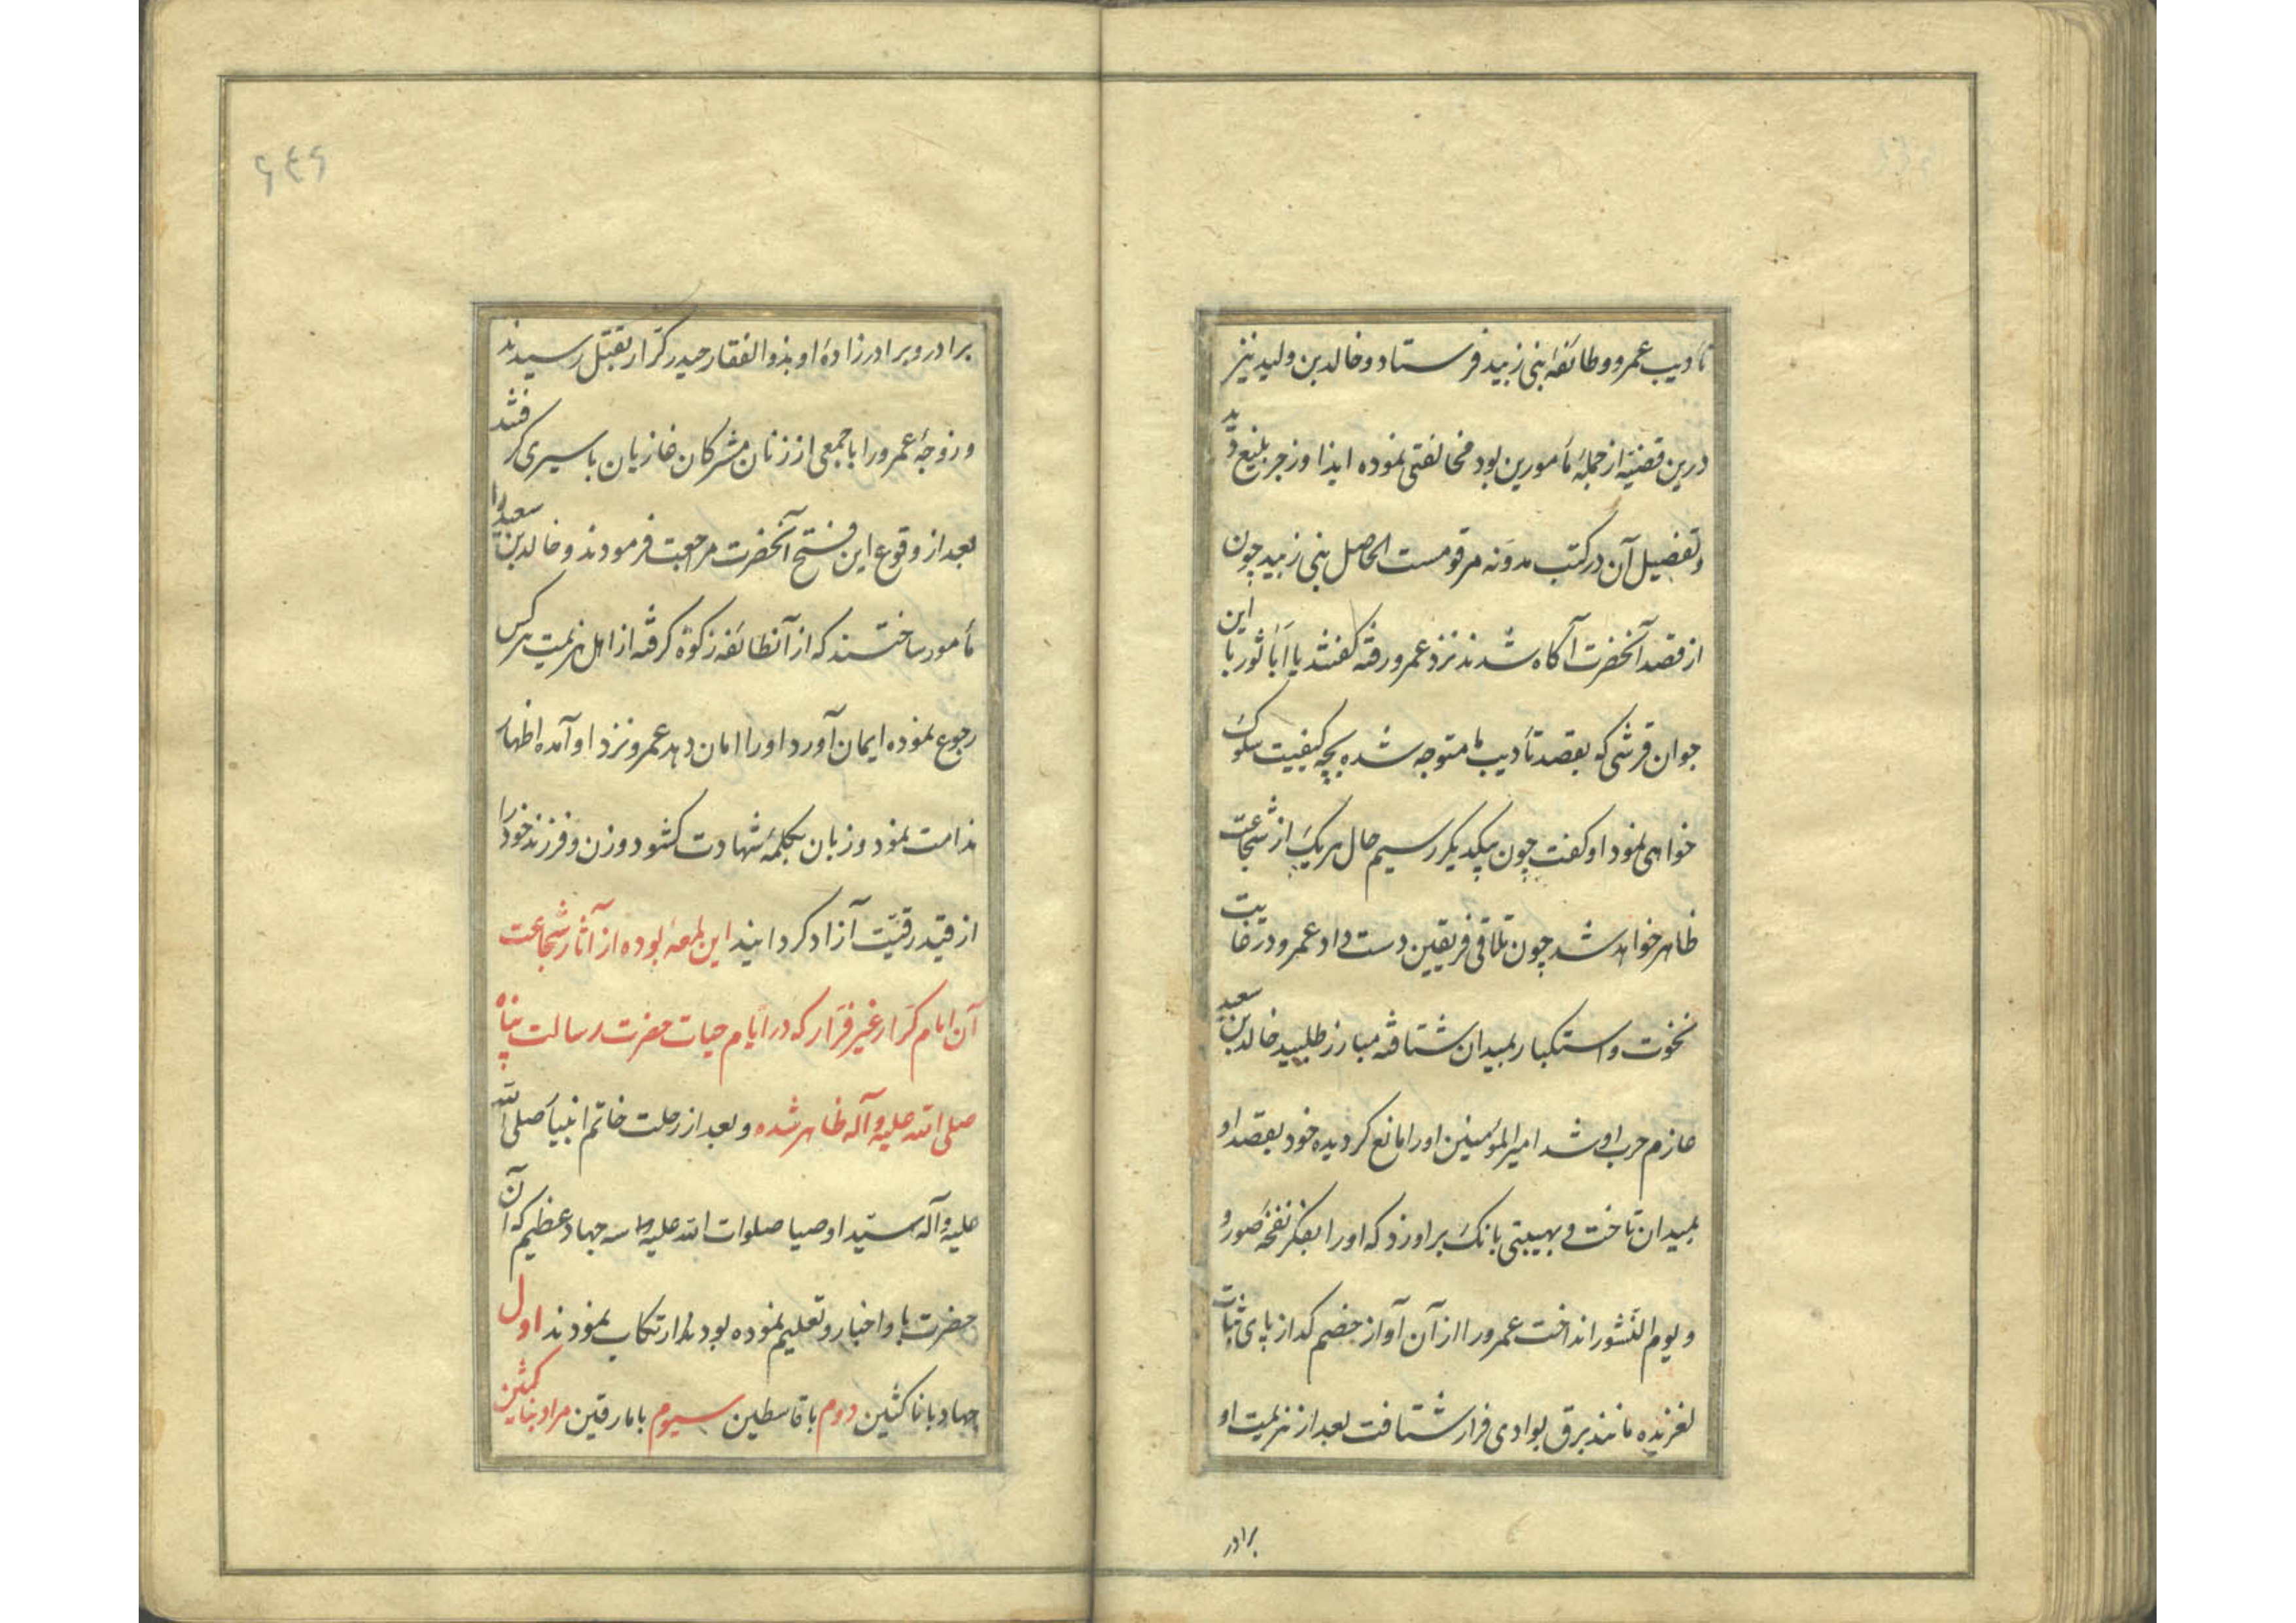 تأدیب عمرو و طائفهٔ بنی زبید فرستاد و خالد بن ولید نیز
درین قضیه از جملهٔ مأمورین بود مخالفتی نموده ایذا و زجر بلیغ دید
و تفصیل آن در کتب مدونه مرقومست الحاصل بنی زبید چون
از قصد آنحضرت آگاه شدند نزد عمرو رفته گفتند یا اباثور با این
جوان قرشی که بقصد تأدیب ما متوجه شده بچه کیفیت سلوک
خواهی نمود او گفت چون بیکدیگر رسیم حال هر یک از شجاعت
ظاهر خواهد شد چون تلاقی فریقین دست داد عمرو در غایت
نخوت و استکبار بمیدان شتافته مبارز طلبید خالد بن سعید
عازم حرب او شد امیرالمؤمنین او را مانع گردیده خود بقصد او
بمیدان تاخت و بهیبتی بانک بر او زد که او را بفکر نفخهٔ صور و
و یوم النشور انداخت عمرو را از آن آواز خصم گداز پای ثبات
لغزیده مانند برق بوادی فرار شتافت بعد از هزیمت او
برادر
۶۴۶
برادر و برادرزادهٔ او بذوالفقار حیدر کرار بقتل رسیدند
و زوجهٔ عمرو را با جمعی از زنان مشرکان غازیان باسیری گرفتند
بعد از وقوع این فتح آنحضرت مراجعت فرمودند و خالد بن سعید را
مأمور ساختند که از آنطائفه زکوة گرفته از اهل هزیمت هر کس
رجوع نموده ایمان آورد او را امان دهد عمرو نزد او آمده اظهار
ندامت نمود و زبان بکلمهٔ شهادت گشود و زن و فرزند خود را
از قید رقیت آزاد گردانید این لمعهٔ بوده از آثار شجاعت
آن امام کرار غیر فرار که در ایام حیات حضرت رسالت پناه
صلی الله علیه و آله ظاهر شده و بعد از رحلت خاتم انبیا صلی الله
علیه و آله سید اوصیا صلوات الله علیهما سه جهاد عظیم که آن
حضرت باو اخبار و تعلیم نموده بودند ارتکاب نمودند اول
جهاد با ناکثین دوم با قاسطین سیوم با مارقین مراد بناکثین